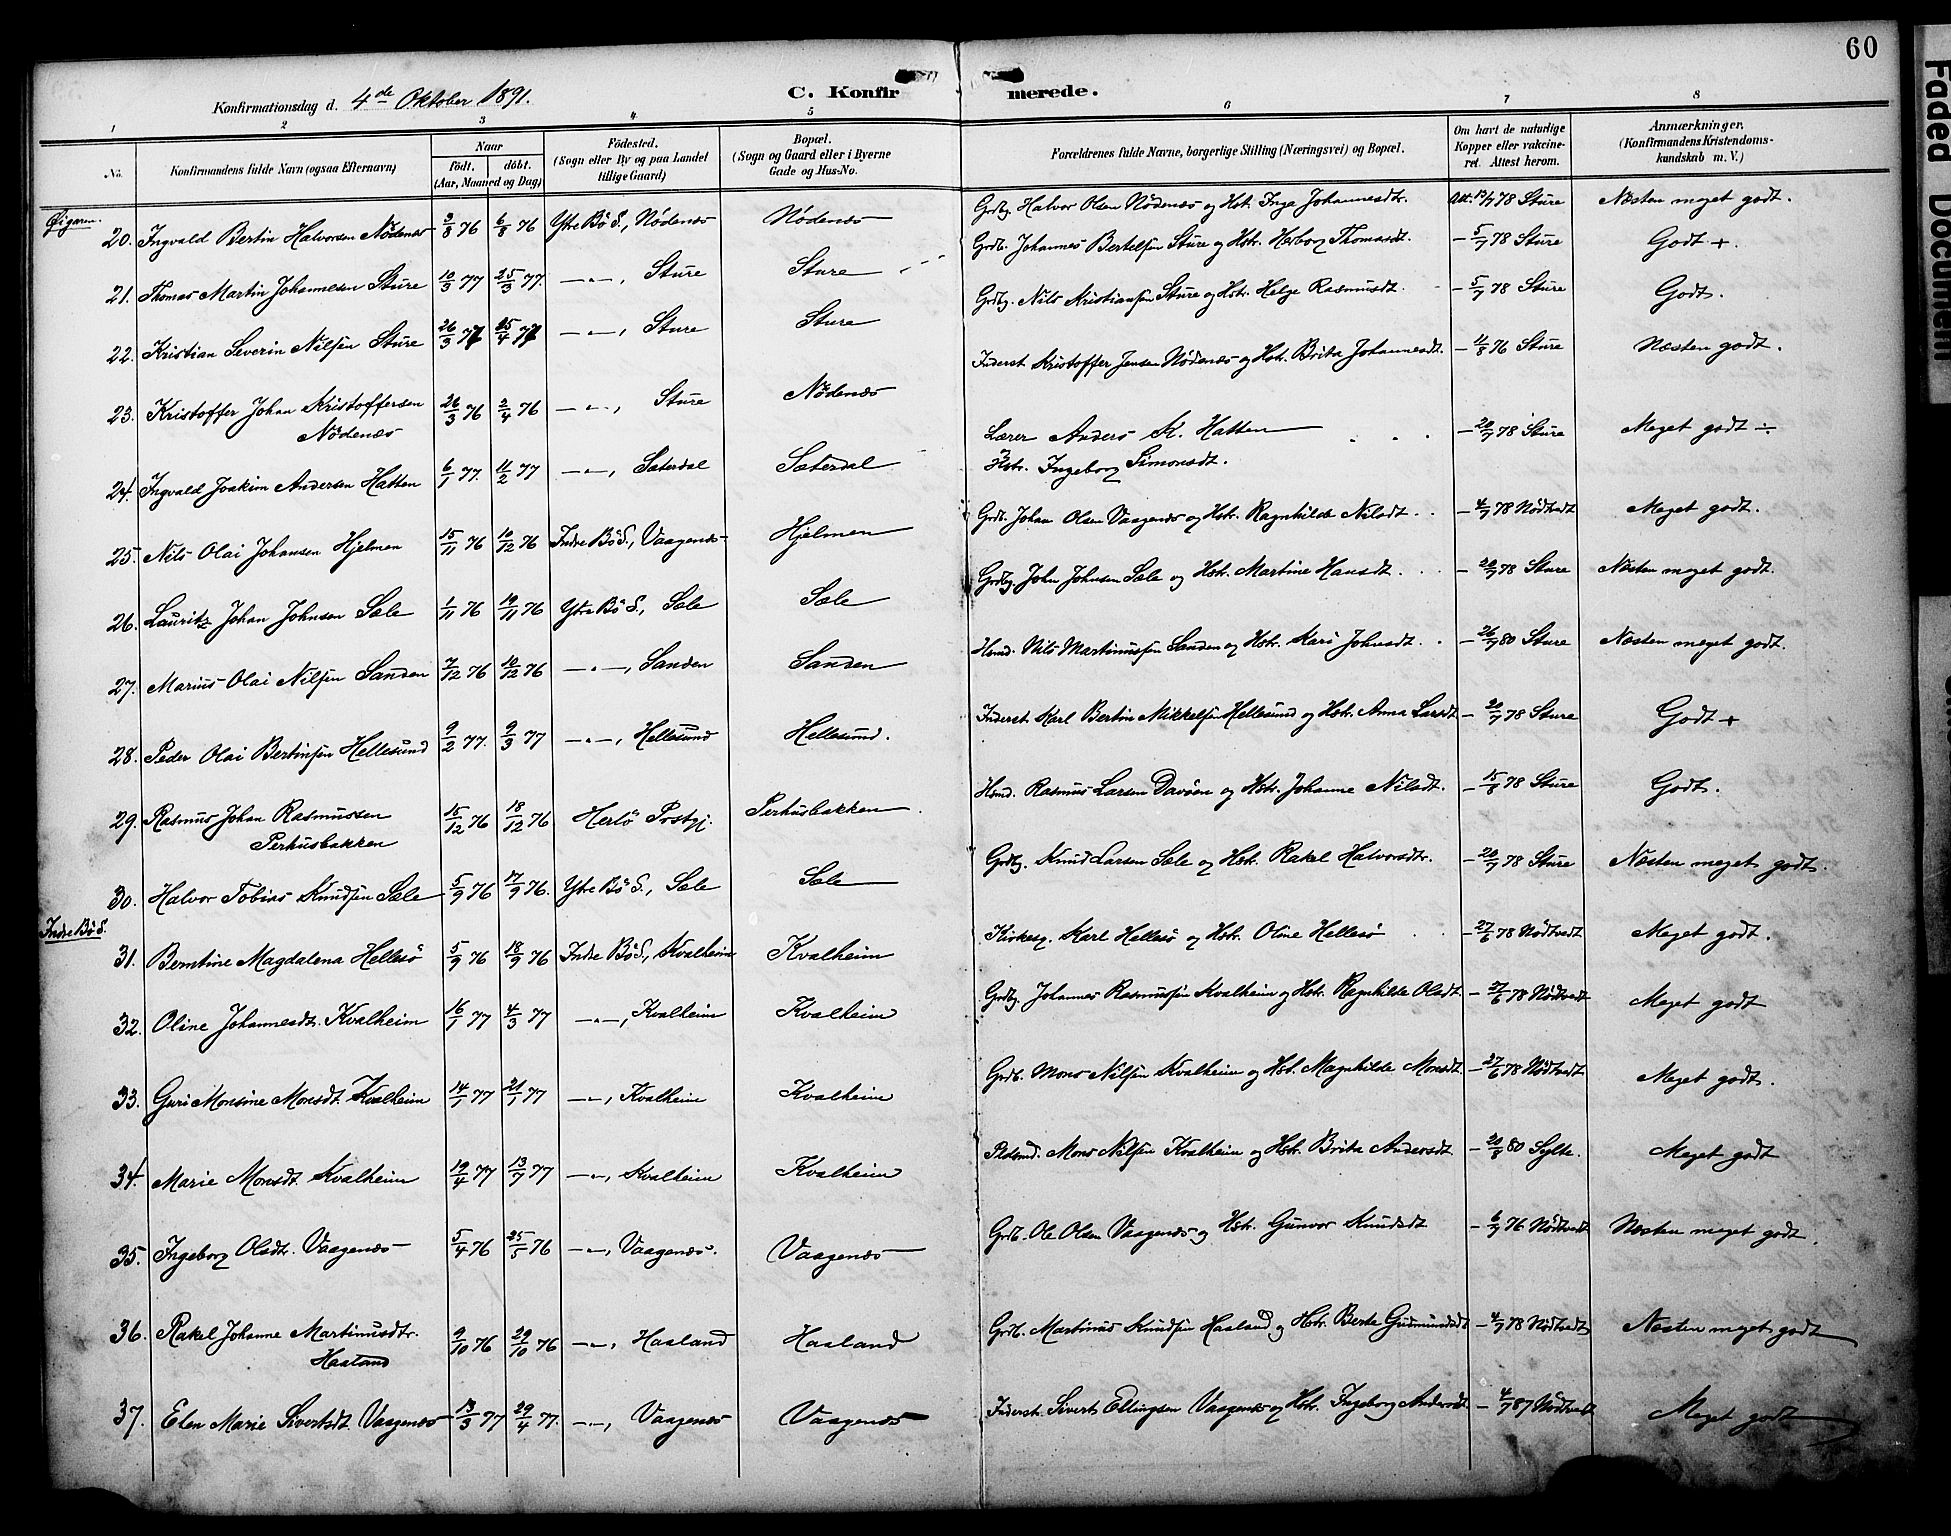 60
Konfirmationsdag d. 4de Oktober 1891.
C. Konfirmerede.
1 2 3 4 5 6 7 8
No.
Konfirmandens fulde Navn (ogsaa Efternavn)
Naar
födt. döbt.
(Aar, Maaned og Dag)
Födested.
(Sogn eller By og paa Landet
tillige Gaard)
Bopæl.
(Sogn og Gaard eller i Byerne
Gade og Hus-No.
Forældrenes fulde Navne, borgerlige Stilling (Næringsvei) og Bopæl.
Om havt de naturlige
Kopper eller vakcine-
ret. Attest herom.
Anmærkninger.
(Konfirmandens Kristendoms-
kundskab m. V.)
Øigaren.
20. Ingvald Bertin Halvorsen Nödenæs 2/8 76 6/8 76 Ytre Bö S., Nödenæs Nödenæs Grdbg. Halvor Olsen Nödenæs og Hstr. Inga Johannesdtr. 78 Sture Næsten meget godt.
21. Thomas Martin Johannesen Sture 10/3 77 25/3 77. —"—, Sture Sture Grdb. Johannes Bertelsen Sture og Hstr. Herborg Thomasdt. — 5/7 78 Sture Godt +.
22. Kristian Severin Nilsen Sture 26/3 77 25/4 77 —"—, Sture Sture Grdbg. Nils Kristiansen Sture og Hstr. Helge Rasmusdt. — 5/7 78 Sture Godt.
23. Kristoffer Johan Kristoffersen 26/3 76 2/4 76 —"—, Sture Nödenæs Inderst Kristoffer Jensen Nödenæs og Hstr. Brita Johannesdt. — 11/8 76 Sture Næsten godt.
Nödenæs
24. Ingvald Joakim Andersen Hatten 6/1 77. 11/2 77 —"—, Sæterdal Sæterdal Lærer Anders K. Hatten — 20/7 78 Sture Meget godt ÷
Hstr. Ingeborg Simonsdt.
25. Nils Olai Johansen Hjelmen 15/11 76 10/12 76 Indre Bö S., Vaagenæs Hjelmen Grdb. Johan Olsen Vaagenæs og Hstr. Ragnhilde Nilsdt. — 4/7 78 Nödtvedt Meget godt.
26. Lauritz Johan Johnsen Sæle 1/11 76 19/11 76 Ytre Bö S., Sæle Sæle Grdbg. John Johnsen Sæle og Hstr. Martine Hansdt. — 20/7 78 Sture Næsten meget godt.
27. Marius Olai Nilsen Sanden 7/12 76 10/12 76 —"—, Sanden Sanden Hsmd. Nils Martinussen Sanden og Hstr. Kari Johnsdt. — 26/7 80 Sture Næsten meget godt.
28. Peder Olai Bertinsen Hellesund 9/2 77. 9/3 77 —"—, Hellesund Hellesund. Inderst Karl Bertin Mikkelsen Hellesund og Hstr. Anna Larsdt — 20/7 78 Sture Godt +
29. Rasmus Johan Rasmussen 15/12 76 18/12 76 Herlö Prstgj. Perhusbakken Hsmd. Rasmus Larsen Davöen og Hstr. Johanne Nilsdt. 78 Sture Godt.
Perhusbakken
30. Halvor Tobias Knudsen Sæle 5/9 76 17/9 76. Ytre Bö S., Sæle Sæle Grdbg. Knud Larsen Sæle og Hstr. Rakel Halvorsdtr. — 20/7 78 Sture Næsten meget godt.
Indre Bö S.
31. Berntine Magdalena Hellesö 5/9 76 18/9 76 Indre Bö S., Kvalheim Kvalheim Kirkesg. Karl Hellesö og Hstr. Oline Hellesö — 27/6 78 Nödtvedt Meget godt.
32. Oline Johannesdtr. Kvalheim 16/1 77 4/3 77 —"—, Kvalheim Kvalheim Grdbg. Johannes Rasmussen Kvalheim og Hstr. Ragnhilde Olsdt — 27/6 78 Nödtvedt Meget godt
33. Guri Monsine Monsdt. Kvalheim 14/1 77 21/1 77 —"—, Kvalheim Kvalheim Grdb. Mons Nilsen Kvalheim og Hstr. Magnhilde Monsdt — 27/6 78 Nödtvedt Meget godt.
34. Marie Monsdt. Kvalheim 19/4 77 13/7 77 —"—, Kvalheim Kvalheim Mons Nilsen Kvalheim og Hstr. Brita Andersdt 80 Sylte. Meget godt
35. Ingeborg Olsdtr. Vaagenæs 5/4 76 25/5 76 —"—, Vaagenæs. Vaagenæs Grdb. Ole Olsen Vaagenæs og Hstr. Gunvor Knudsdt — 6/7 76 Nödtvedt Næsten meget godt.
36. Rakel Johanne Martinusdtr. 9/10 76 29/10 76 —"—, Haaland Haaland Grdb. Martinus Knudsen Haaland og Hstr. Berta Gudmundsdt — 4/7 78 Nödtvedt Næsten meget godt
Haaland
37. Elen Marie Sivertsdt. Vaagenæs 13/3 77 29/4 77. —"—, Vaagenæs Vaagenæs Inderst. Sivert Ellingsen Vaagenæs og Hstr. Ingeborg Andersdt — 4/7 87 Nödtvedt Meget godt
Faded Document